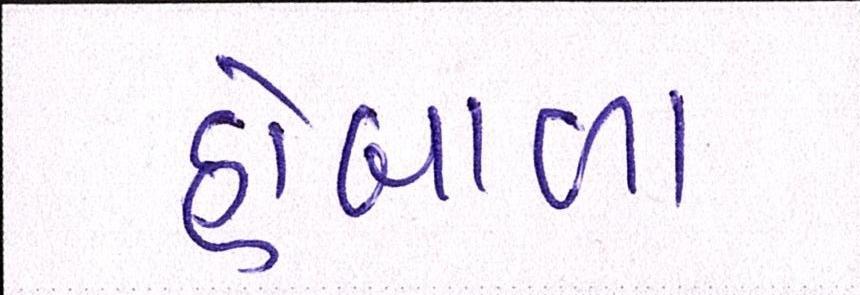 હોબાળા